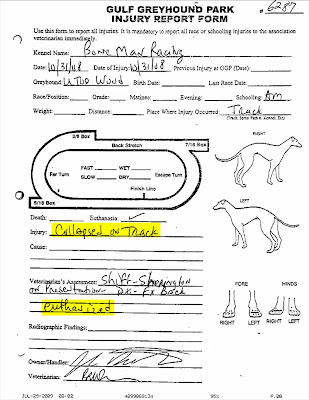 #6287
GULF GREYHOUND PARK
INJURY REPORT FORM
Use this form to report all injuries. It is mandatory to report all race or schooling injuries to the association
veterinarians immediately.
Kennel Name: Bone Man Racing
Date: 10/31/08 Date of Injury: 10/31/08 Previous Injury at GGP (Date):
Greyhound: Wood Birth Date: Last Race Date:
Race/Position: Grade: Matinee: Evening: Schooling: AM
Weight: Distance: Place Where Injury Occurred: Track
(Track, Sprint Path, Kennel, Etc)
3/8 Box
Back Stretch
7/16 Box
FAST WET
SLOW DRY
Far Turn
Escape Turn
Finish Line
5/16 Box
RIGHT
LEFT
Death: Euthanasia: ✓
Injury: Collapsed on Track
Cause:
Veterinarian's Assessment: Shiff-Sherington
on Presentation - Dx - Fx Back
euthanized
FORE HINDS
RIGHT LEFT RIGHT LEFT
Radiographic Findings:
Owner/Handler:
Veterinarian:
JUL-29-2009 20:02 4099869134 95% P.08